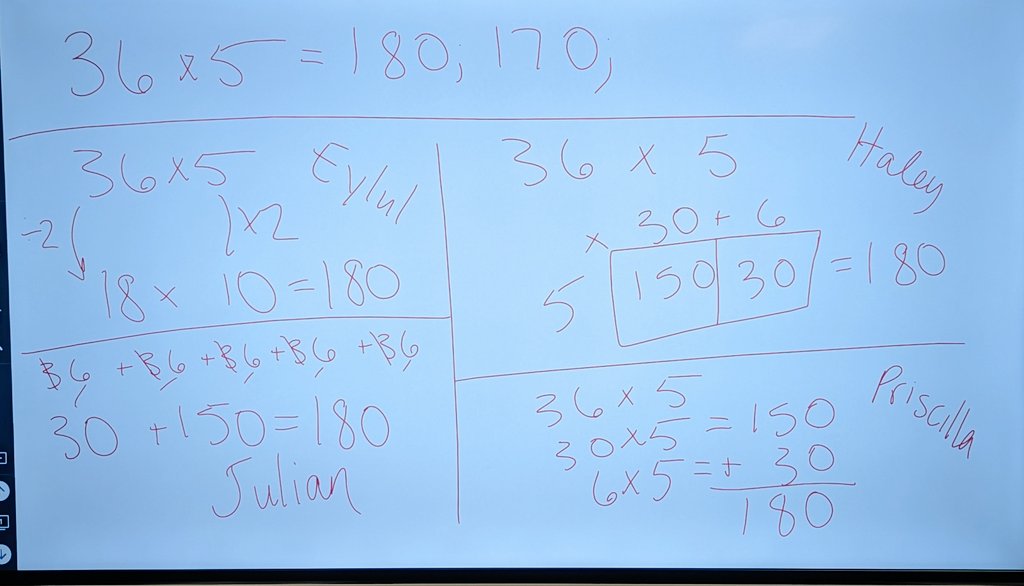 36 x 5 = 180; 170;
36 x 5 Eylul
-2 x2
18 x 10 = 180
36 + 36 + 36 + 36 + 36
30 + 150 = 180
Julian
36 x 5 Haley
x 30 + 6
5 150 30 = 180
36 x 5 Priscilla
30 x 5 = 150
6 x 5 = + 30
180